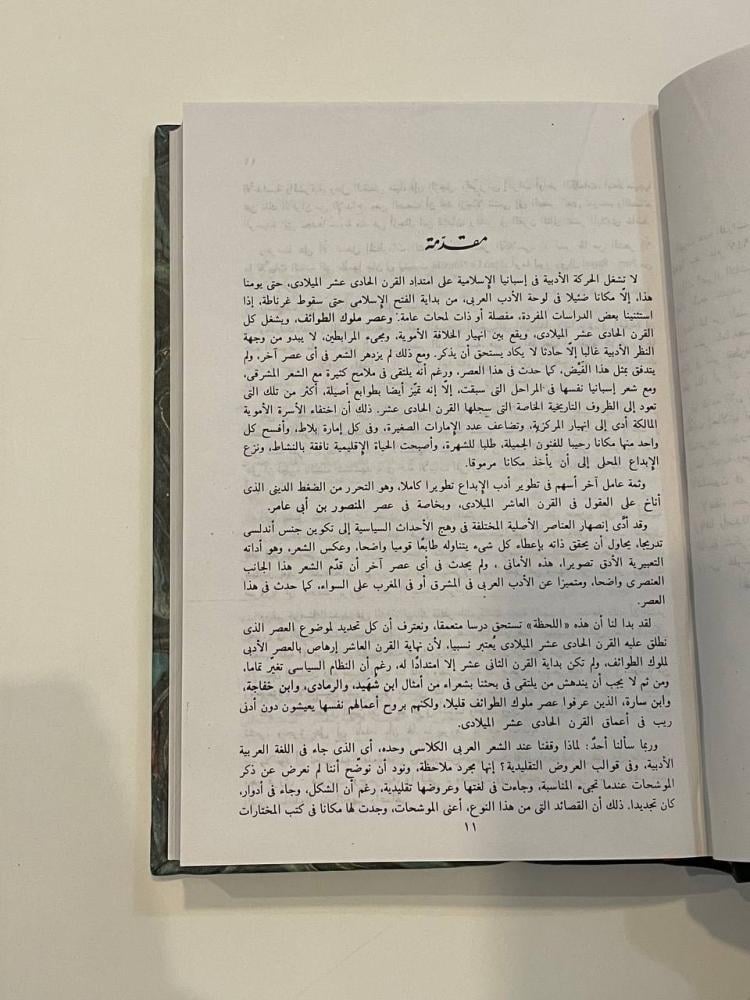 مقدّمة
لا تشغل الحركة الأدبية فى إسبانيا الإسلامية على امتداد القرن الحادى عشر الميلادى، حتى يومنا
هذا، إلّا مكانا ضئيلا فى لوحة الأدب العربى، من بداية الفتح الإسلامى حتى سقوط غرناطة، إذا
استثنينا بعض الدراسات المفردة، مفصلة أو ذات لمحات عامة. وعصر ملوك الطوائف، ويشغل كل
القرن الحادى عشر الميلادى، ويقع بين انهيار الخلافة الأموية، ومجىء المرابطين، لا يبدو من وجهة
النظر الأدبية غالبا إلّا حادثا لا يكاد يستحق أن يذكر. ومع ذلك لم يزدهر الشعر فى أى عصر آخر، ولم
يتدفق بمثل هذا الفَيْض، كما حدث فى هذا العصر، ورغم أنه يلتقى فى ملامح كثيرة مع الشعر المشرقى،
ومع شعر إسبانيا نفسها فى المراحل التى سبقت، إلّا إنه تميّز أيضا بطوابع أصيلة، أكثر من تلك التى
تعود إلى الظروف التاريخية الخاصة التى سجلها القرن الحادى عشر. ذلك أن اختفاء الأسرة الأموية
المالكة أدى إلى انهيار المركزية، وتضاعف عدد الإمارات الصغيرة، وفى كل إمارة بلاط، وأفسح كل
واحد منها مكانا رحيبا للفنون الجميلة، طلبا للشهرة، وأصبحت الحياة الإقليمية نافقة بالنشاط، ونزع
الإبداع المحلى إلى أن يأخذ مكانا مرموقا.
وثمة عامل آخر أسهم فى تطوير أدب الإبداع تطويرا كاملا، وهو التحرر من الضغط الدينى الذى
أناخ على العقول فى القرن العاشر الميلادى، وبخاصة فى عصر المنصور بن أبى عامر.
وقد أدَّى إنصهار العناصر الأصلية المختلفة فى وهج الأحداث السياسية إلى تكوين جنس أندلسى
تدريجا، يحاول أن يحقق ذاته بإعطاء كل شىء يتناوله طابعًا قوميا واضحا، وعكس الشعر، وهو أداته
التعبيرية الأدق تصويرا، هذه الأمانى ، ولم يحدث فى أى عصر آخر أن قدّم الشعر هذا الجانب
العنصرى واضحا، ومتميزا عن الأدب العربى فى المشرق أو فى المغرب على السواء، كما حدث فى هذا
العصر.
لقد بدا لنا أن هذه «اللحظة» تستحق درسا متعمقا، ونعترف أن كل تحديد لموضوع العصر الذى
نطلق عليه القرن الحادى عشر الميلادى يُعتبر نسبيا، لأن نهاية القرن العاشر إرهاص بالعصر الأدبى
لملوك الطوائف، ولم تكن بداية القرن الثانى عشر إلا امتدادًا له، رغم أن النظام السياسى تغيّر تماما،
ومن ثم لا يجب أن يندهش من يلتقى فى بحثنا بشعراء من أمثال ابن شُهَيد، والرمادى، وابن خفاجة،
وابن سارة، الذين عرفوا عصر ملوك الطوائف قليلا، ولكنهم بروح أعمالهم نفسها يعيشون دون أدنى
ريب فى أعماق القرن الحادى عشر الميلادى.
وربما سألنا أحدٌ: لماذا وقفنا عند الشعر العربى الكلاسى وحده، أى الذى جاء فى اللغة العربية
الأدبية، وفى قوالب العروض التقليدية؟ إنها مجرد ملاحظة، ونود أن نوضّح أننا لم نعرض عن ذكر
الموشحات عندما تجىء المناسبة، وجاءت فى لغتها وعروضها تقليدية، رغم أن الشكل، وجاء فى أدوار،
كان تجديدا. ذلك أن القصائد التى من هذا النوع، أعنى الموشحات، وجدت لها مكانا فى كتب المختارات
١١